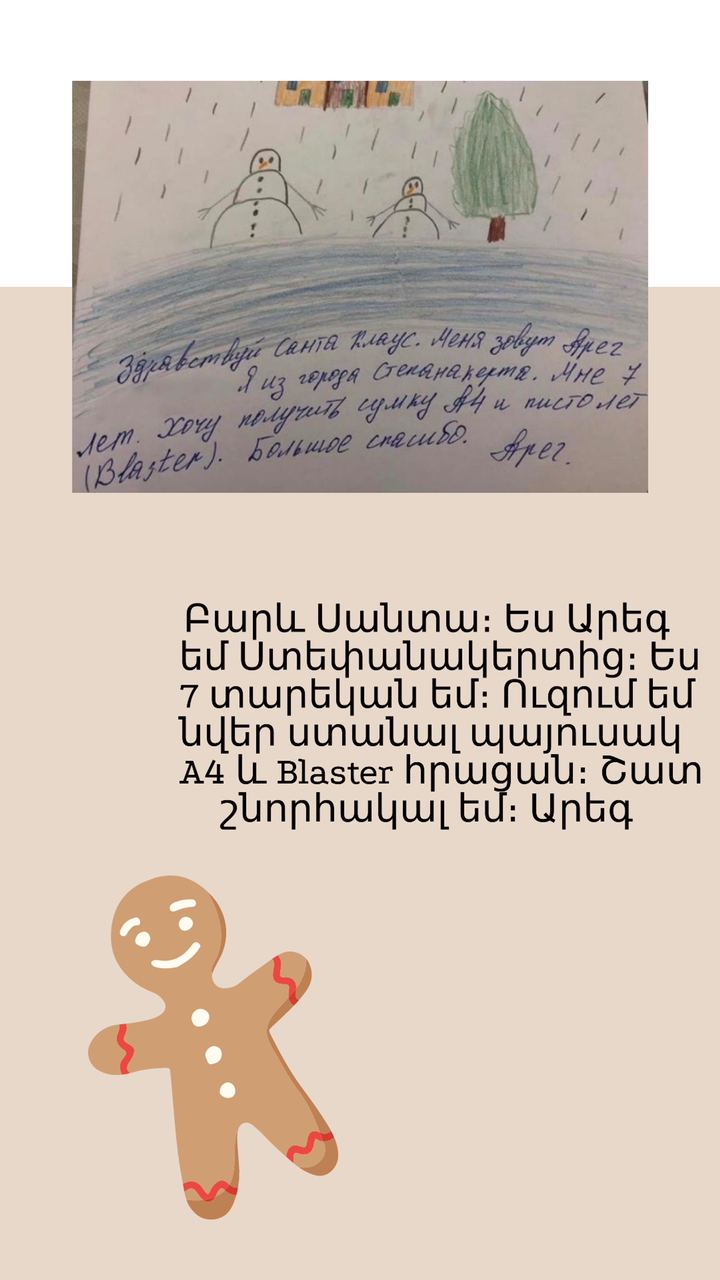 Здравствуй Санта Клаус. Меня зовут Арег
Я из города Степанакерта. Мне 7
лет. Хочу получить сумку А4 и пистолет
(Blaster). Большое спасибо. Арег.
Բարև Սանտա։ Ես Արեգ
եմ Ստեփանակերտից։ Ես
7 տարեկան եմ։ Ուզում եմ
նվեր ստանալ պայուսակ
A4 և Blaster հրացան։ Շատ
շնորհակալ եմ։ Արեգ